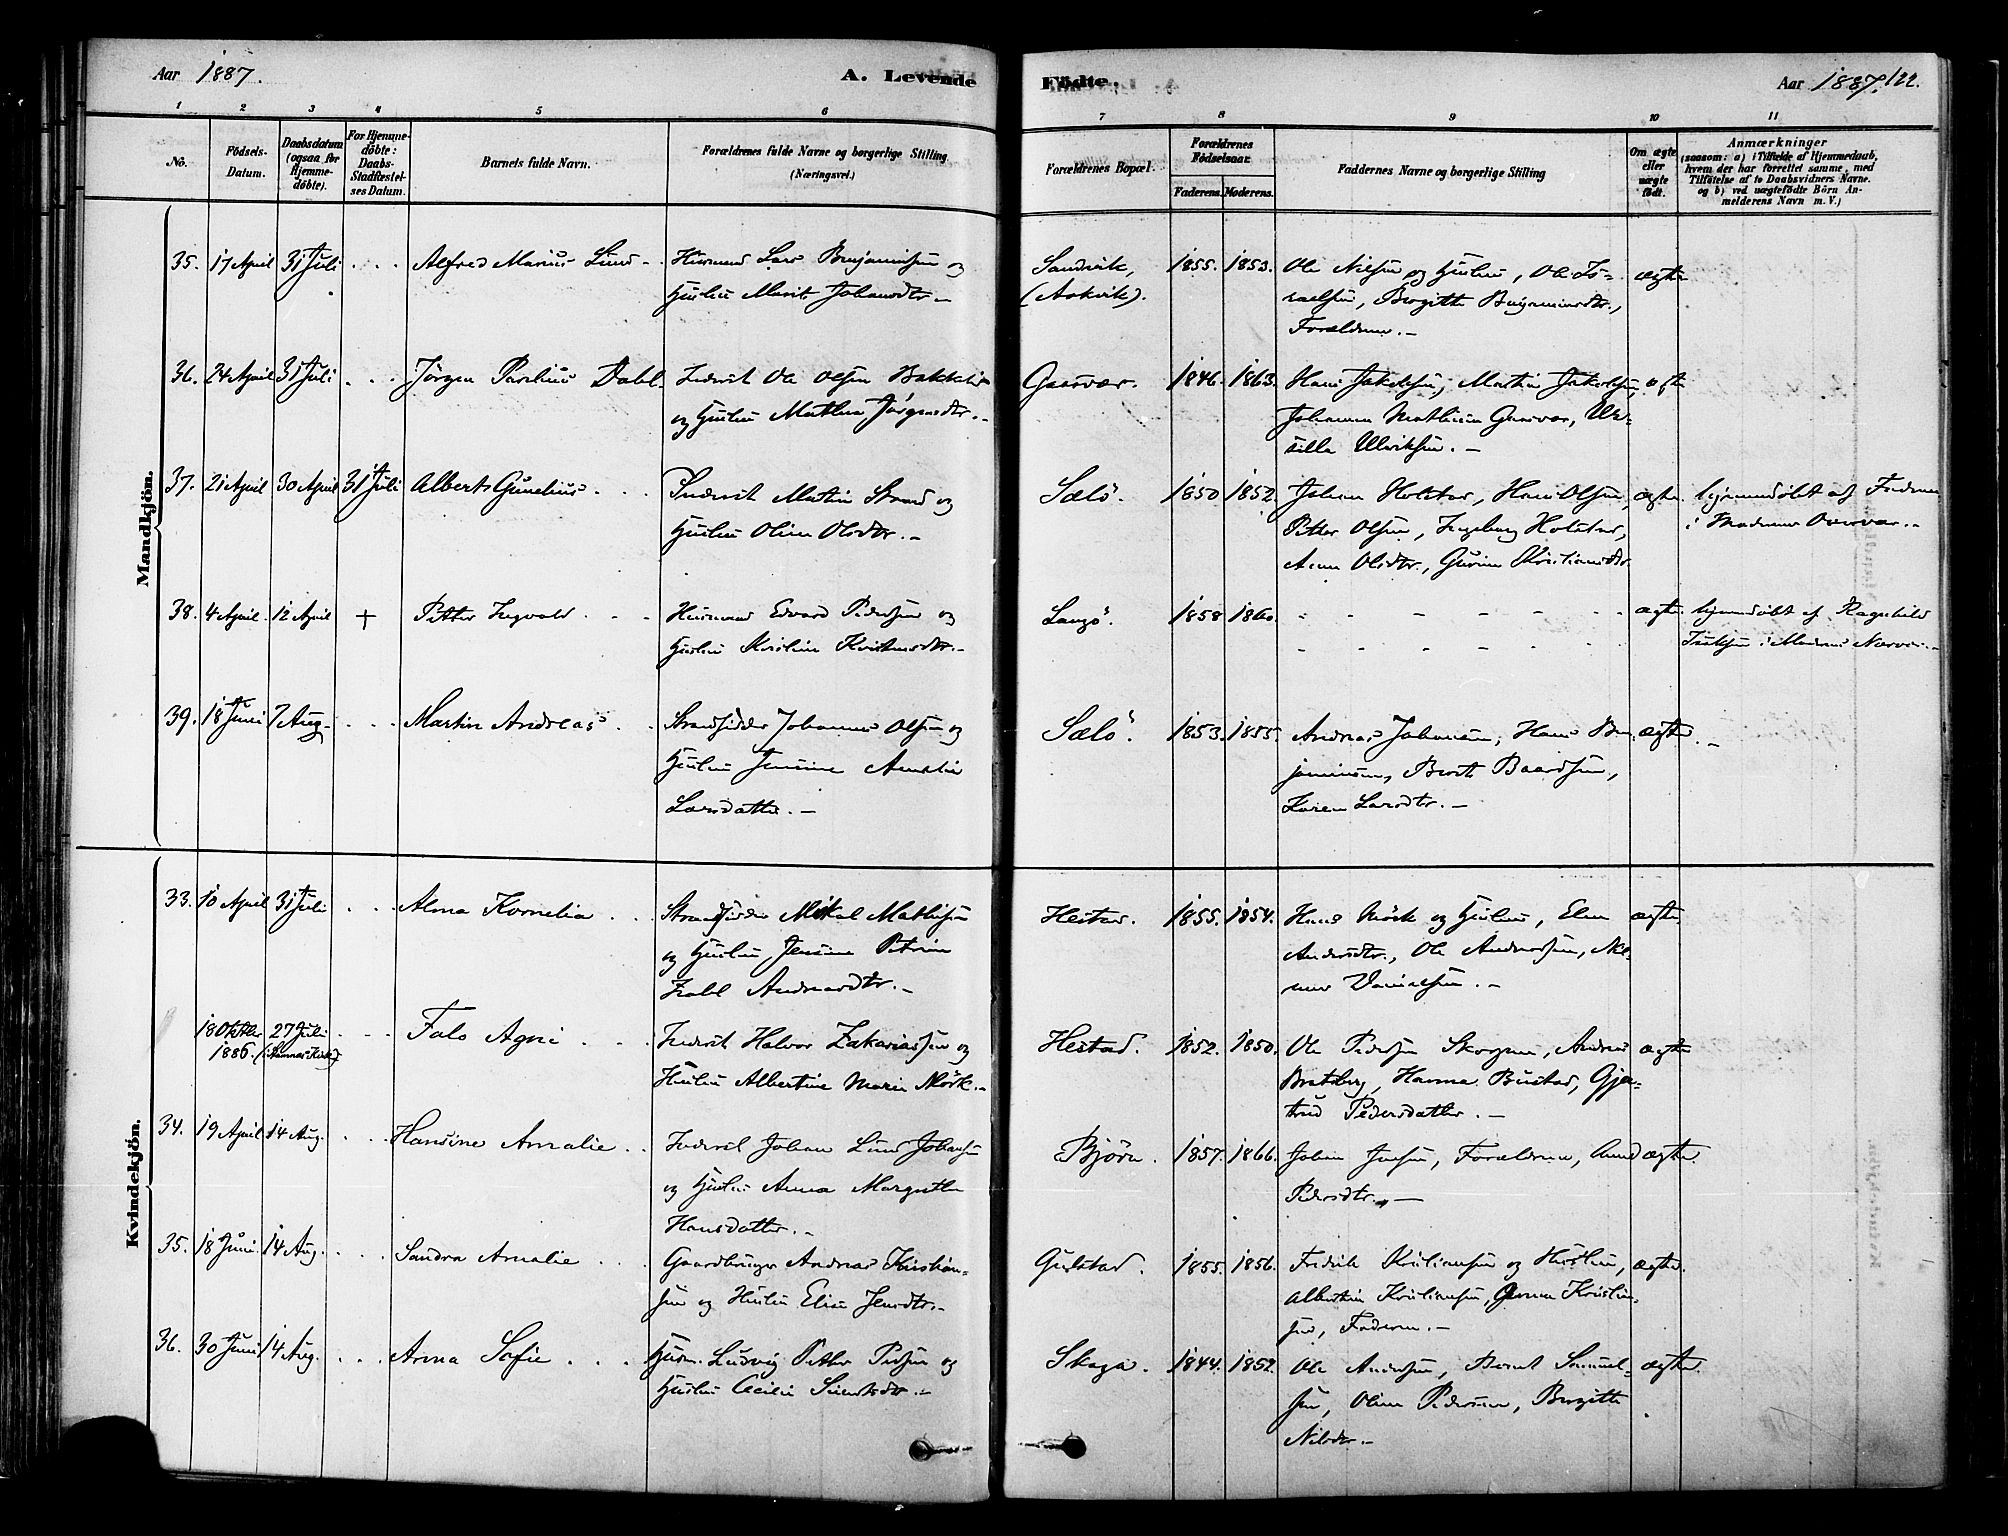 Aar 1887.
A. Levende
Födte.
Aar 1887. 122.
1 2 3 4 5 6 7 8 9 10 11
No.
Födsels-
Datum.
Daabsdatum
(ogsaa for
Hjemme-
döbte).
For Hjemme-
döbte:
Daabs-
Stadfæstel-
ses Datum.
Barnets fulde Navn.
Forældrenes fulde Navne og borgerlige Stilling
(Næringsvei.)
Forældrenes Bopæl.
Forældrenes
Födselsaar.
Faderens. Moderens.
Faddernes Navne og borgerlige Stilling
Om ægte
eller
uægte
födt.
Anmærkninger
(saasom: a) i Tilfælde af Hjemmedaab,
hvem der har forrettet samme, med
Tilföielse af to Daabsvidners Navne.
og b) ved uægtefödte Börn An-
melderens Navn m. V.)
Mandkjön.
35. 17 April 31 Juli Alfred Marius Lund Husmand Lars Benjaminsen og
Hustru Marit Johansdtr.
Sandvik,
(Aakvik).
1855. 1853. Ole Nilsen og Hustru, Ole Is-
raelsen, Birgitte Benjaminsdtr.,
Forældrene.
ægte
36. 24 April 31 Juli Jörgen Parelius Dahl. Inderst Ole Olsen Bakkeli
og Hustru Mathea Jörgensdtr.
Gaasvær. 1846. 1863. Hans Jakobsen, Martin Jakobsen,
Johanna Mathisen Gaasvær,
silla Ulriksen.
ægte
37. 21 April 30 April 31 Juli Albert Gunelius Inderst Martin Strand og
Hustru Oline Olsdtr.
Sælö. 1850 1852. Johan Holstad, Hans Olsen,
Petter Olsen, Ingeborg Holstad,
Anne Olsdtr., Gurine Kristiansdtr.
ægte hjemmedöbt af Faderen
i Moderens Overvær.
38. 4 April. 12 April + Petter Ingvald Husmand Edvard Pedersen og
Hustru Kristine Kristensdtr.
Langö. 1858 1860. ægte hjemmedöbt af Ragnhild
Isaksen i Moderens Nærvær.
39. 18 Juni 7 Aug. Martin Andreas Strandsidder Johannes Olsen og
Hustru Jensine Amalie
Larsdatter.
Sælö. 1853. 1855. Andreas Johansen, Hans Ben-
jaminsen, Berit Baardsen,
Karen Larsdtr.
ægte
Kvindekjön.
33. 10 April 31 Juli Alma Kornelia Strandsidder Mikal Mathisen
og Hustru, Jensine Petrine
Isabel Andreasdtr.
Hestad. 1855. 1854. Hans Mörk og Hustru, Elen
Andersdtr., Ole Andreassen,
Danielsen.
ægte
18 Oktbr
1886. 27 Juli
Fale Agni Inderst Halvor Zakariassen og
Hustru Albertine Marie Mörk.
Hestad. 1852. 1850. Ole Pedersen Skogen, Andreas
Bratsberg, Hanna Bustad, Gjer-
trud Pedersdatter.
ægte
34. 19 April 14 Aug. Hansine Amalie Inderst Johan Lund Johansen
og Hustru Anna Margrethe
Hansdatter.
Björn. 1857. 1866. Johan Jensen, Forældrene,
Pedersdtr.
ægte.
35. 18 Juni 14 Aug. Sandra Amalie Gaardbruger Andreas Kristian-
sen og Hustru Elise Jensdtr.
Gulstad. 1855. 1856. Fredrik Kristiansen og Hustru,
Albertine Kristiansen, Kristian-
sen, Faderen.
ægte.
36. 30 Juni 14 Aug. Anna Sofie Husm. Ludvig Petter og
Hustru Cecilie
Skaga. 1844. 1852. Ole Andersen, Bernt Samuel-
sen, Oline Pedersen, Birgitte
Nilsdtr.
ægte.